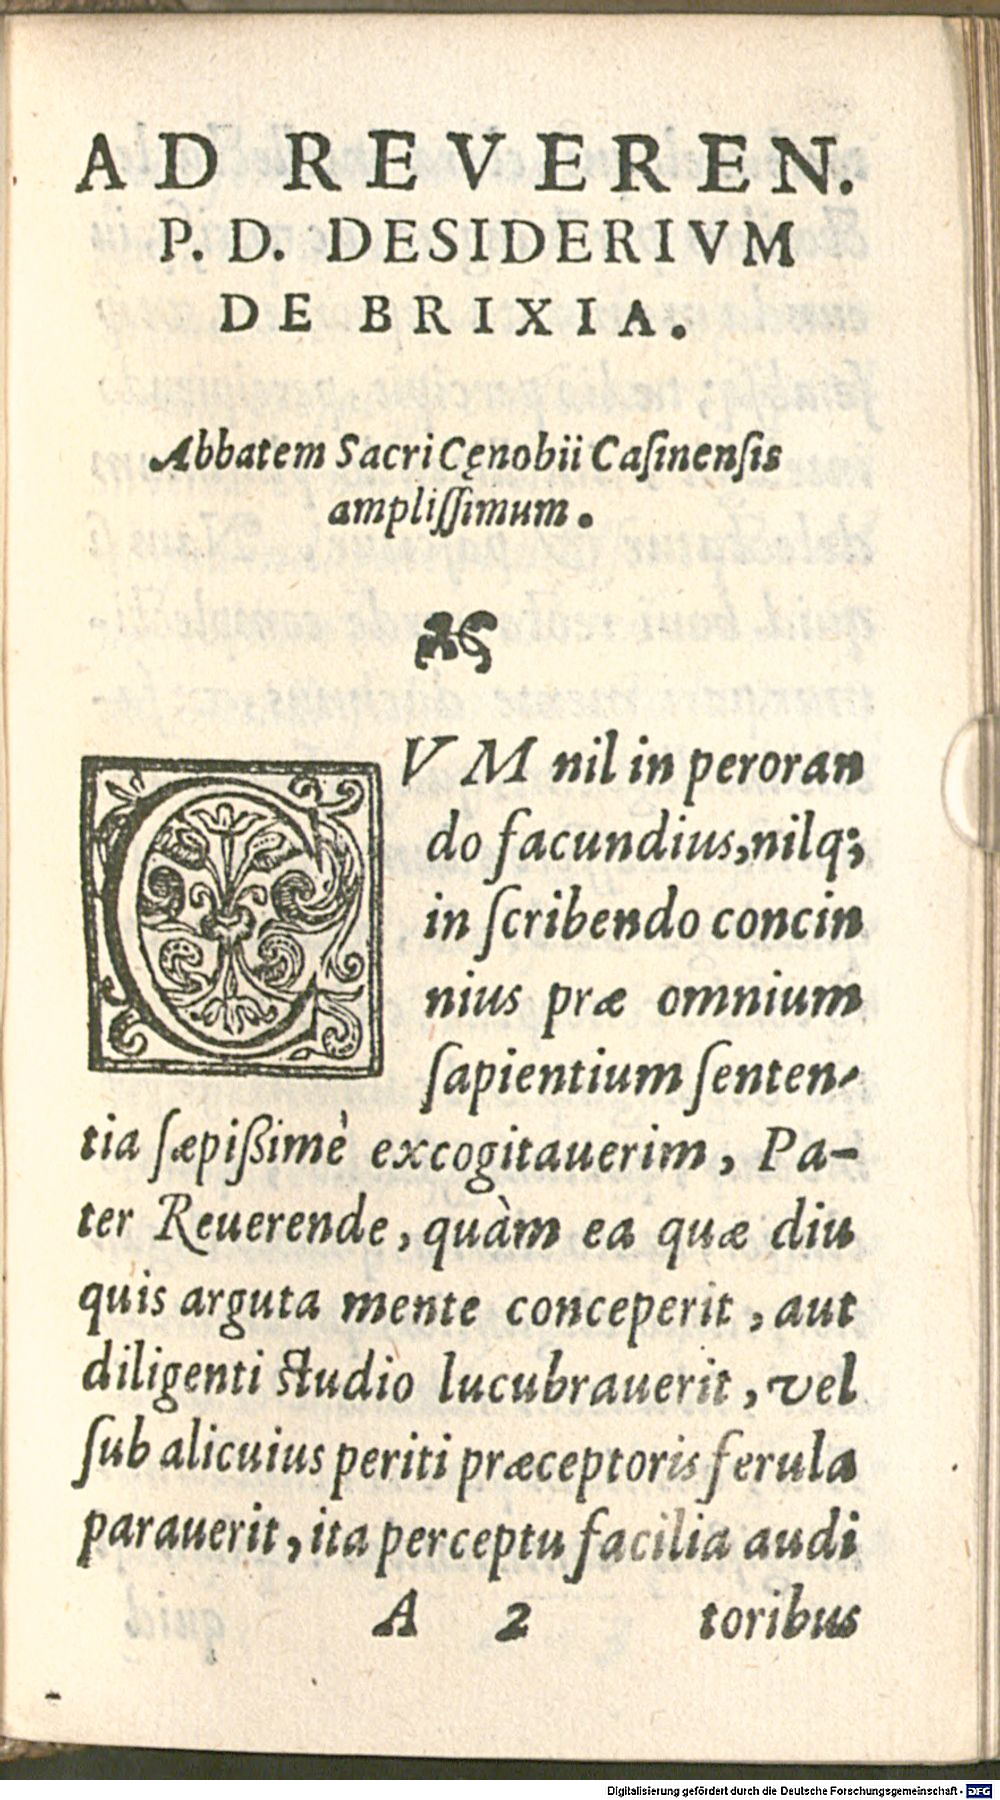 AD REVEREN.
P. D. DESIDERIVM
DE BRIXIA.
Abbatem Sacri Cęnobii Caſinenſis
ampliſſimum.
CVM nil in peroran
do facundius, nilq;
in ſcribendo concin
nius præ omnium
ſapientium ſenten-
tia ſæpißimè excogitauerim, Pa-
ter Reuerende, quàm ea quæ diu
quis arguta mente conceperit, aut
diligenti ſtudio lucubrauerit, vel
ſub alicuius periti præceptoris ferula
parauerit, ita perceptu facilia audi
A 2 toribus
Digitalisierung gefördert durch die Deutsche Forschungsgemeinschaft - DFG